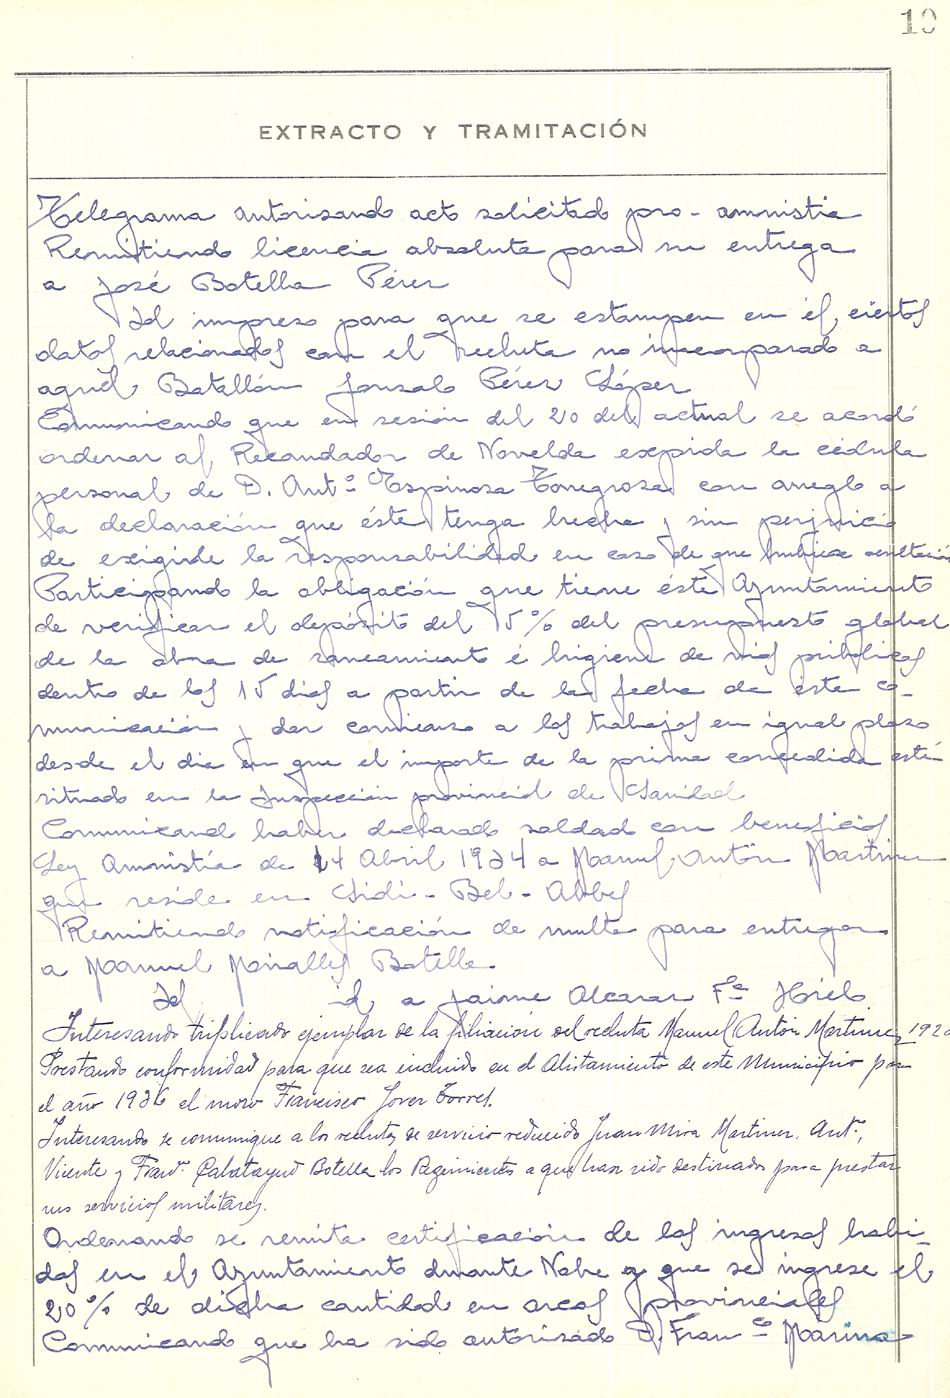 10
EXTRACTO Y TRAMITACIÓN
Telegrama autorisando acto solicitado pro-amnistia
Remitiendo licencia absoluta para su entrega
a José Botella Pérez
Id impreso para que se estampen en él, ciertos
datos relacionados con el recluta no incorporado a
aquel Batallón Gonzalo Pérez López
Comunicando que en sesión del 20 del actual se acordó
ordenar al Recaudador de Novelda expida la cédula
personal de D. Antº Espinosa Torregrosa con arreglo a
la declaración que éste tenga hecha y sin perjuicio
de exigirle la responsabilidad en caso de que hubiese ocultación
Participando la obligación que tiene éste Ayuntamiento
de verificar el depósito del 15% del presupuesto global
de la obra de saneamiento é higiene de vias públicas
dentro de los 15 dias a partir de la fecha de esta co-
municación y dar comienzo a los trabajos en igual plazo
desde el dia en que el importe de la prima concedida esté
situado en la Inspección provincial de Sanidad
Comunicand haber declarado soldad con beneficios
Ley Amnistía de 14 Abril 1934 a Manuel Antón Martinez
que reside en Sidi-Bel-Abbes
Remitiendo notificación de multa para entregar
a Manuel Miralles Botella.
Id id, a Jaime Alcaraz Fª Hielo
Interesando triplicado ejemplar de la filiación del recluta Manuel Antón Martinez, 192
Prestando conformidad para que sea incluido en el Alistamiento de este Municipio para
el año 1936 el mozo Francisco Jover Torres.
Interesando se comunique a los reclutas de servicio reducido Juan Mira Martinez, Antº,
Vicente y Franº Calatayud Botella los Regimientos a que han sido destinados para prestar
sus servicios militares.
Ordenando se remita certificación de los ingresos habi-
dos en el Ayuntamiento durante Nobre y que se ingrese el
20% de dicha cantidad en arcas provinciales
Comunicando que ha sido autorizado D. Franco Marina